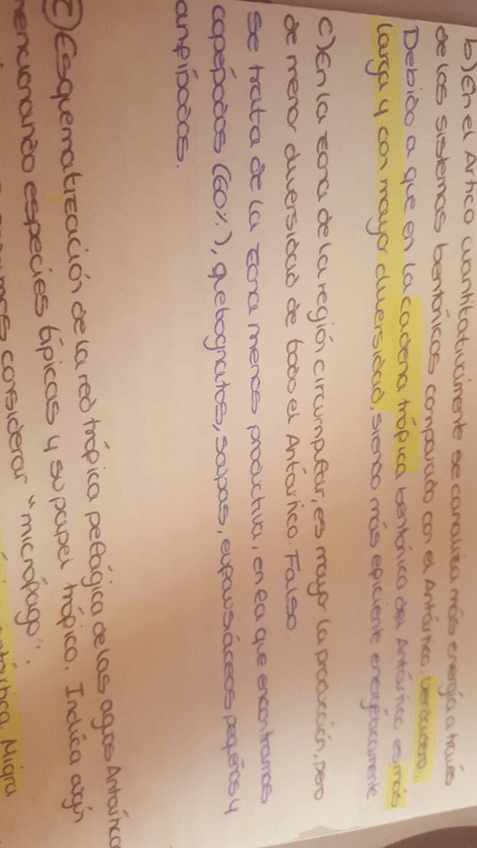 b) En el Ártico cuantitativamente se canaliza más energía a través
de los sistemas bentónicos comparado con el Antártico. Verdadero.
Debido a que en la cadena trópica bentónica del Antártico es más
larga y con mayor diversidad, siendo más eficiente energéticamente.
c) En la zona de la región circumpolar, es mayor la producción, pero
de menor diversidad de todo el Antártico. Falso.
Se trata de la zona menos productiva, en ea que encontramos
copépodos (60%), quetognatos, salpas, eufausiáceos pequeños y
anfípodos.
2) Esquematización de la red trópica pelágica de las aguas Antártica
mencionando especies típicas y su papel trópico. Indica algún
considerar "micrófago".
Migra